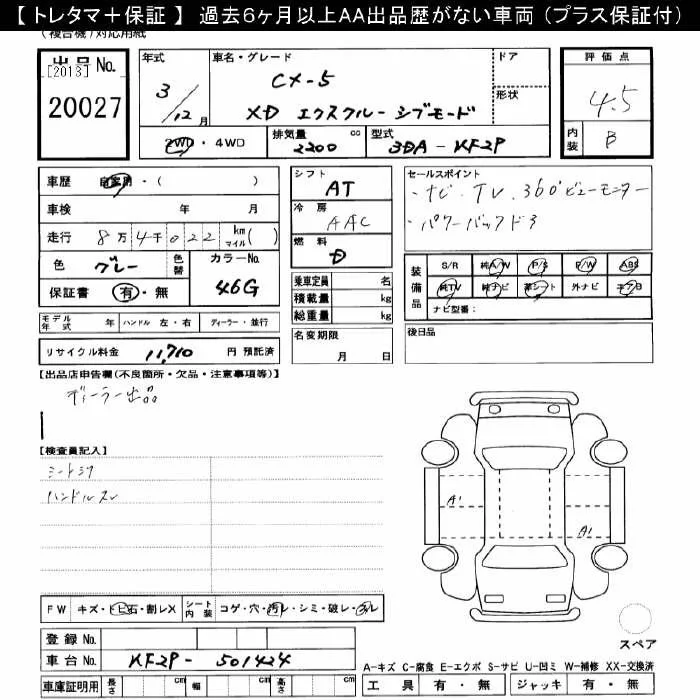 【 トレタマ＋保証 】 過去6ヶ月以上AA出品歴がない車両 (プラス保証付)
(複合機)対応用紙
出品No. [2013] 20027
年式 3/12月
車名・グレード CX-5 XD エクスクルーシブモード
ドア
形状
評価点 4.5
内装 B
2WD・4WD
排気量 2200 cc
型式 3DA-KF2P
車歴 自家用・( )
車検 年 月
走行 8万4千022 km マイル( )
色 グレー
色替
カラーNo. 46G
保証書 有・無
シフト AT
冷房 AAC
燃料 D
乗車定員 名
積載量 kg
総重量 kg
セールスポイント
・ナビ.TV.360°ビューモニター
・パワーバックドア
装備品 S/R 純A/W P/S P/W ABS
純TV 純ナビ 革シート 外ナビ エアB
ナビ型番:
モデル年式 年 ハンドル 左・右 ディーラー・並行
名変期限 月 日
後日品
リサイクル料金 11,710 円 預託済
【出品店申告欄(不良箇所・欠品・注意事項等)】
ディーラー出品
【検査員記入】
シートシワ
ハンドルスレ
A1
A1
FW キズ・トビ石・割レX シート内装 コゲ・穴・汚レ・シミ・破レ・スレ
登録No.
車台No. KF2P-501424
スペア
A-キズ C-腐食 E-エクボ S-サビ U-凹ミ W-補修 XX-交換済
車庫証明用 長さ cm 幅 cm 高さ cm
工具 有・無 ジャッキ 有・無